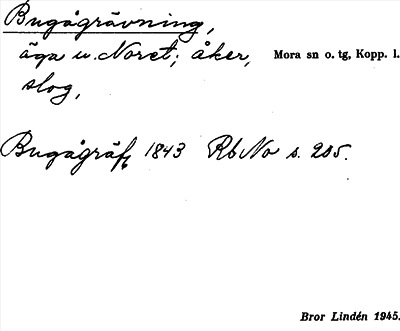 Bugågrävning,
äga u. Noret; åker, Mora sn o. tg, Kopp. l.
slog,
Bugågräf 1843 Rb No s. 205.
Bror Lindén 1945.